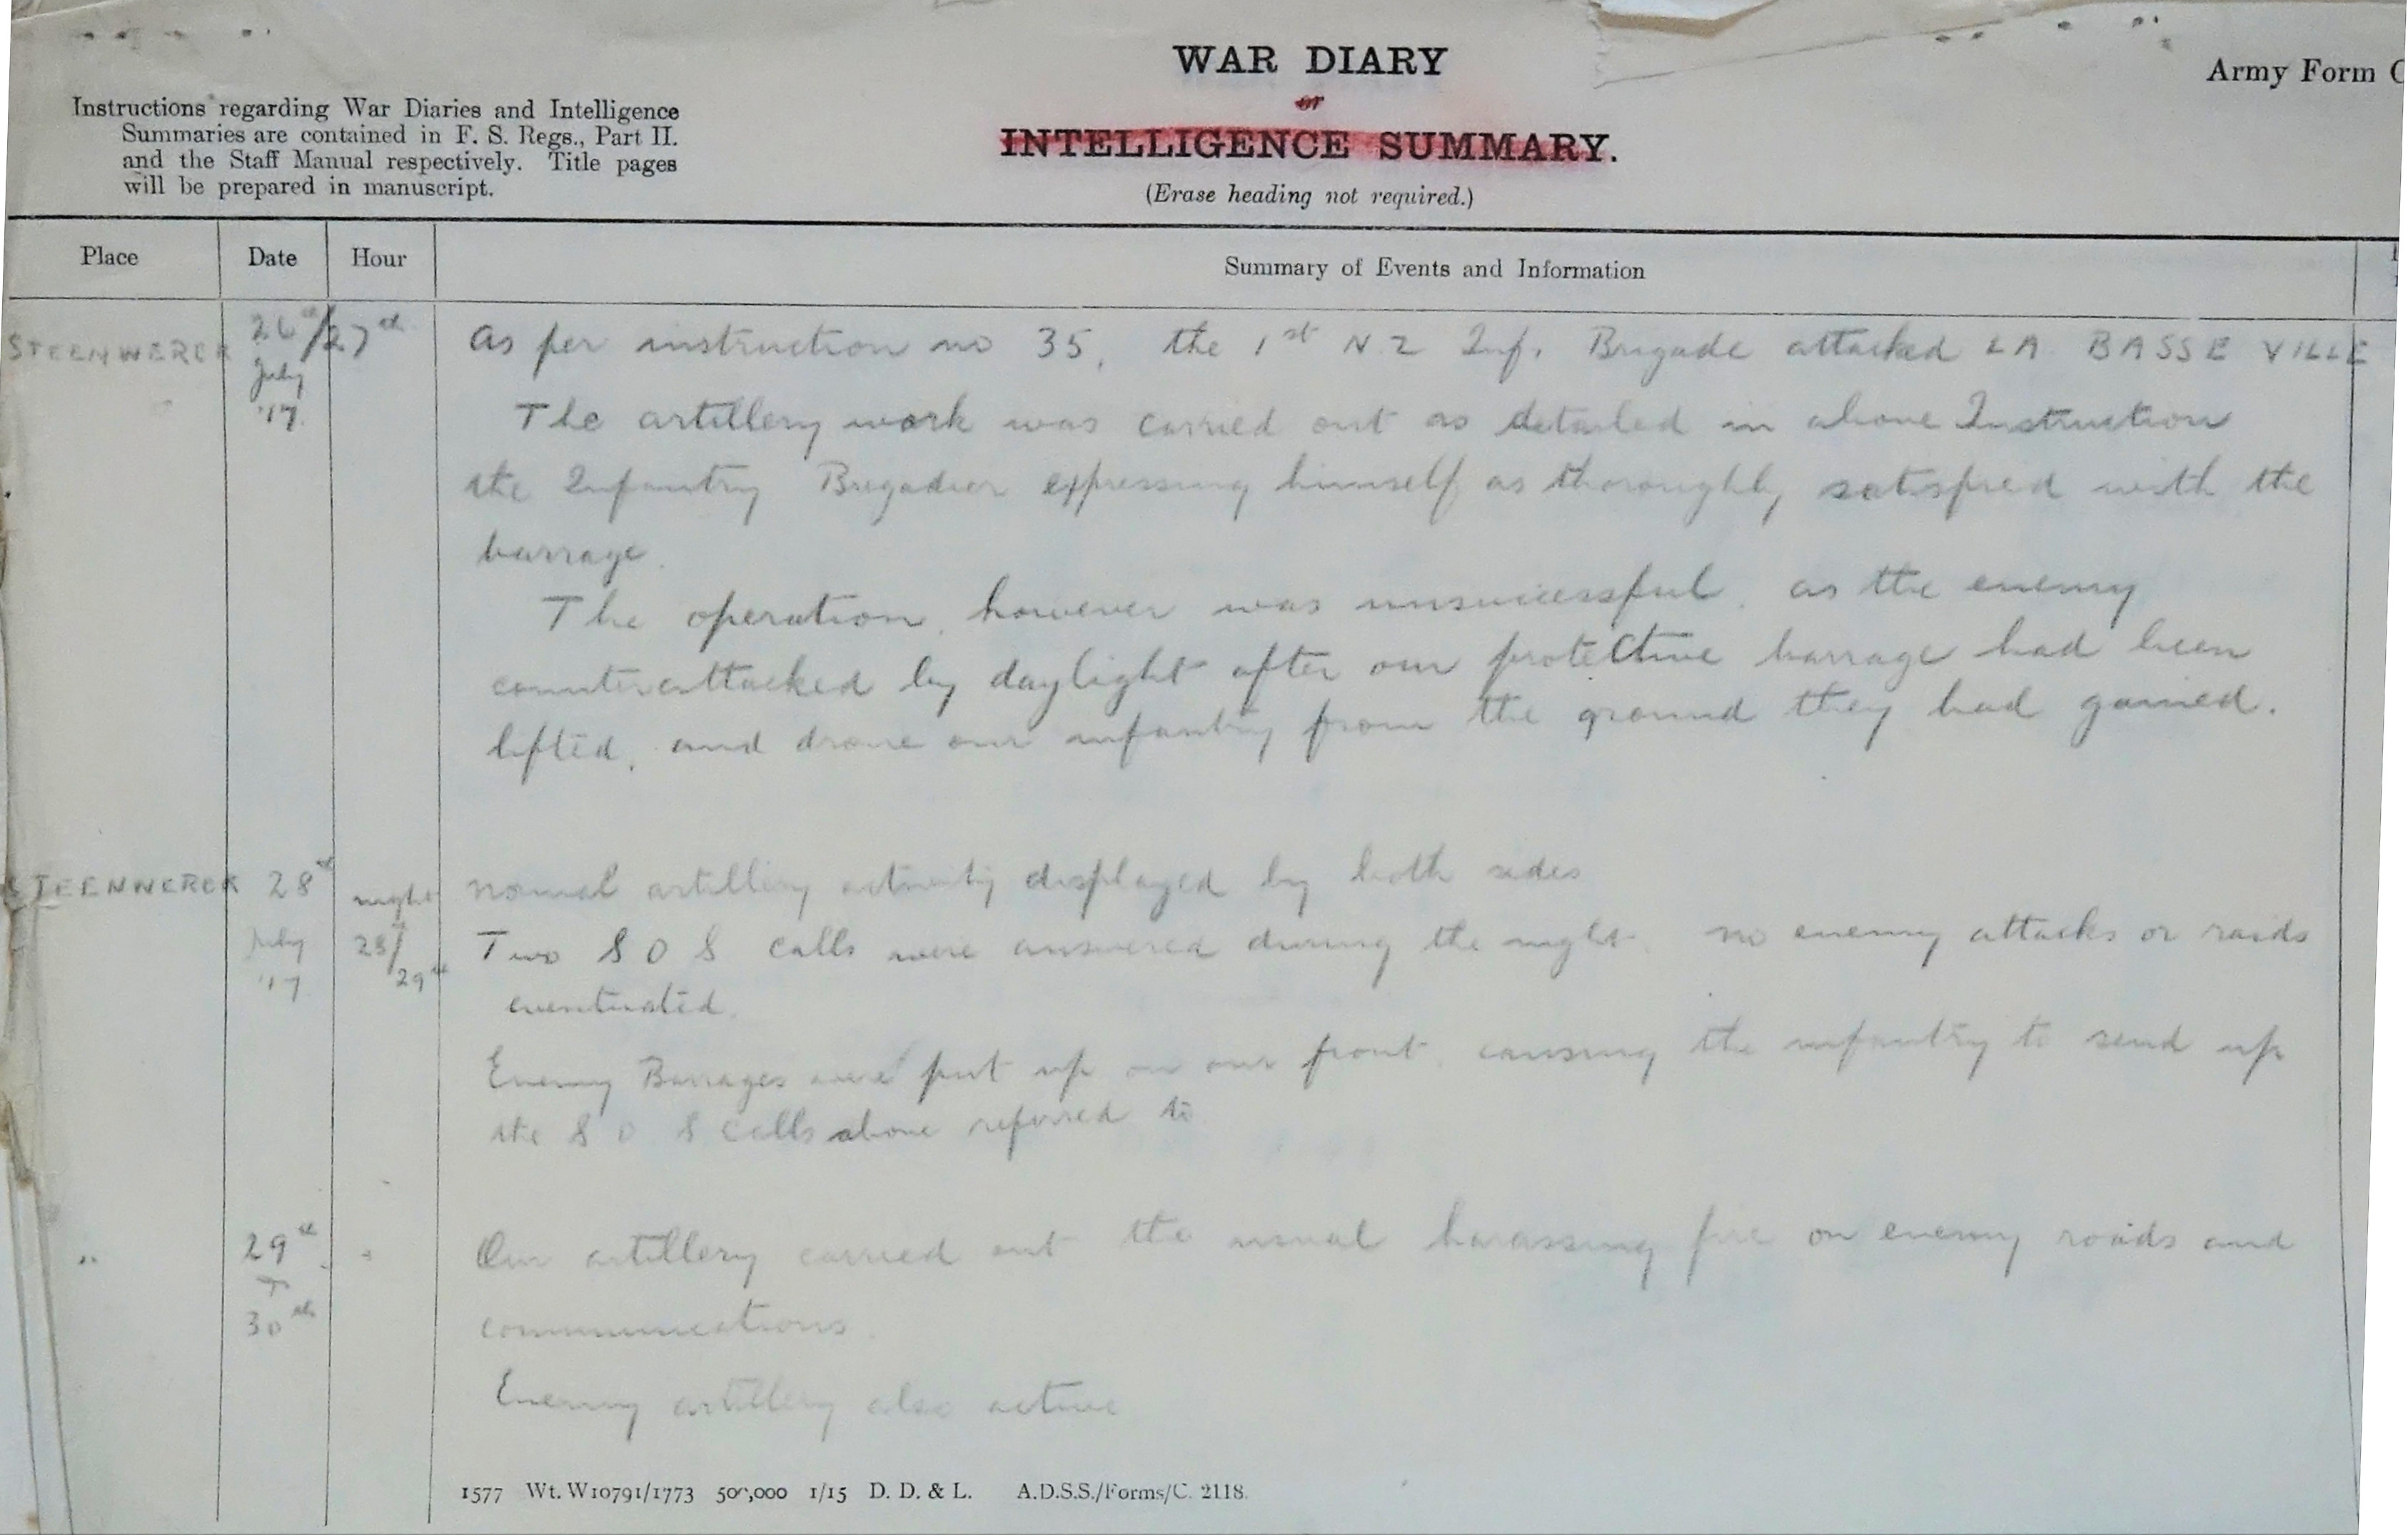 WAR DIARY
Army Form C
or
INTELLIGENCE SUMMARY.
(Erase heading not required.)
Instructions regarding War Diaries and Intelligence
Summaries are contained in F. S. Regs., Part II.
and the Staff Manual respectively. Title pages
will be prepared in manuscript.
Place Date Hour Summary of Events and Information
STEENWERCK 26th/27th July '17. As per instruction no 35, the 1st N.Z Inf. Brigade attacked LA BASSE VILLE
The artillery work was carried out as detailed in above Instruction
the Infantry Brigadier expressing himself as thoroughly satisfied with the
barrage.
The operation, however was unsuccessful, as the enemy
counterattacked by daylight after our protective barrage had been
lifted, and drove our infantry from the ground they had gained.
STEENWERCK 28th July '17 night 28th/29th normal artillery activity displayed by both sides
Two S O S calls were answered during the night. no enemy attacks or raids
eventuated.
Enemy Barrages were put up on our front, causing the infantry to send up
the S O S calls above referred to
" 29th + 30th " Our artillery carried out the usual harassing fire on enemy roads and
communications.
Enemy artillery also active
1577 Wt. W10791/1773 500,000 1/15 D. D. & L. A.D.S.S./Forms/C. 2118.